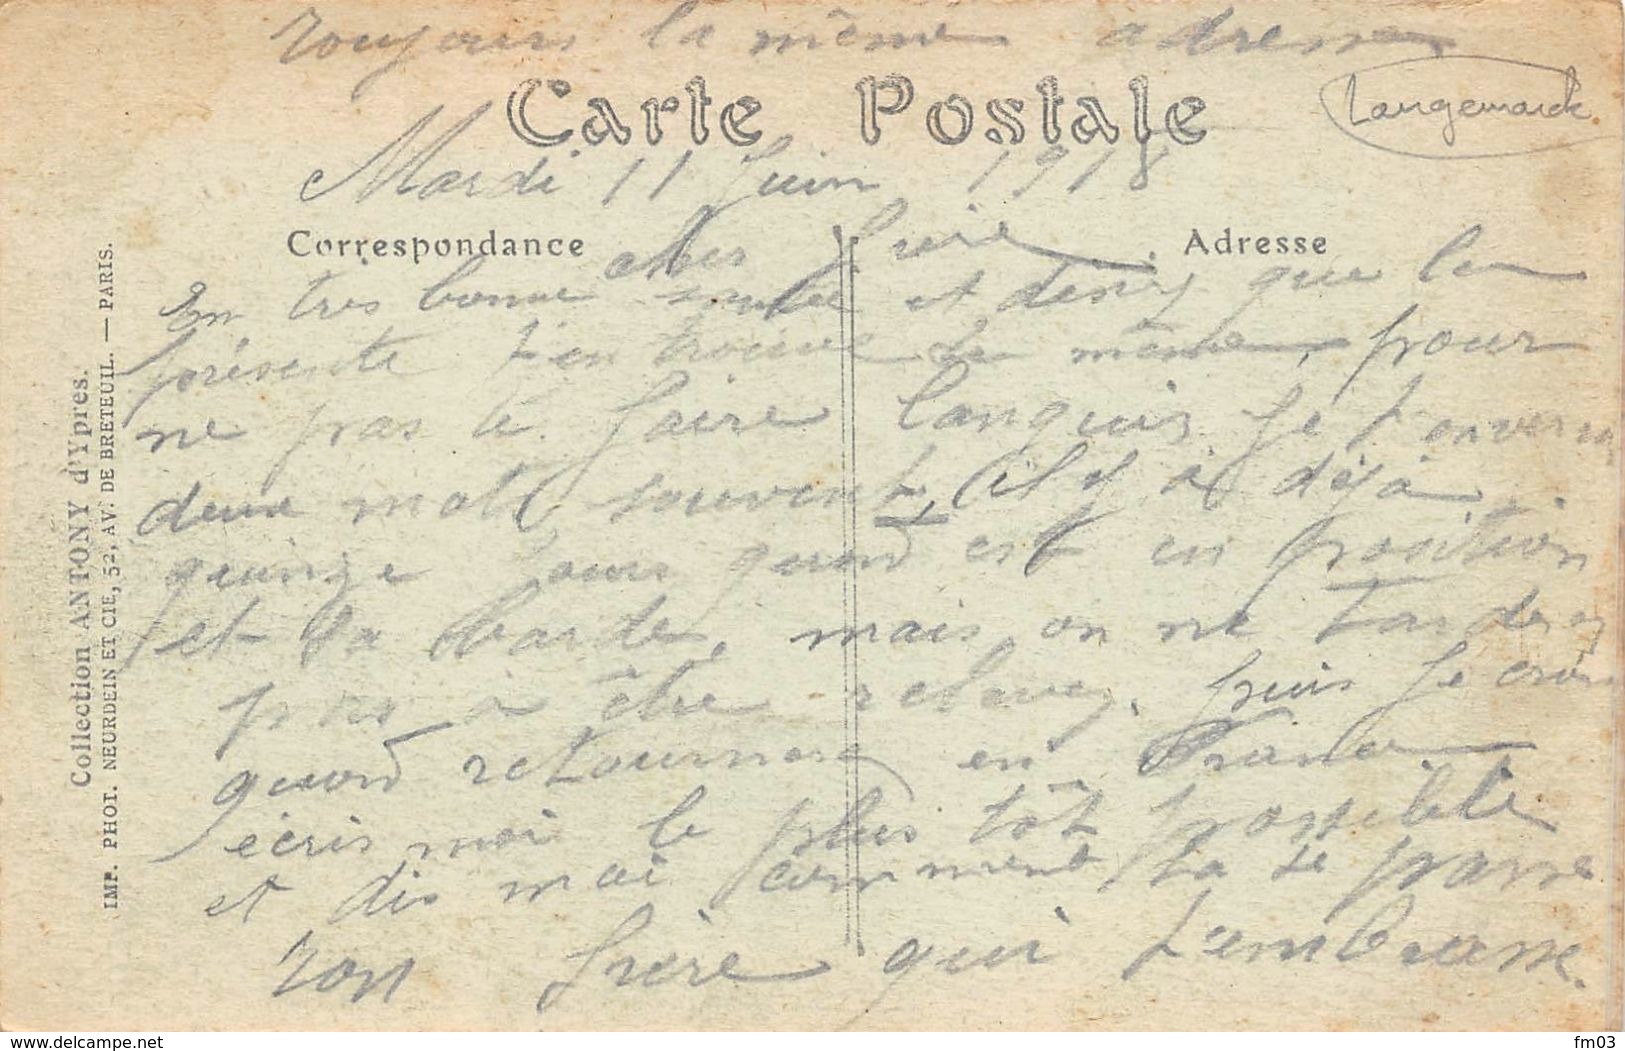 toujours la même adresse
Carte Postale
Langemarck
Mardi 11 Juin 1918
Correspondance
Adresse
cher frère
En très bonne santée et désir que la
présente t'en trouve de même, pour
ne pas te faire languir je t'enverrai
deux mots souvent, il y à déjà
quinze jours quond est en position
et sa barde, mais on ne tardera
pas à être relevez, puis je crois
quond retournera en France
écris moi le plus tôt possible
et dis moi comment sa se passe
ton frère qui t'embrasse.
Collection ANTONY d'Ypres.
IMP. PHOT. NEURDEIN ET CIE, 52, AV. DE BRETEUIL. — PARIS.
www.delcampe.net
fm03